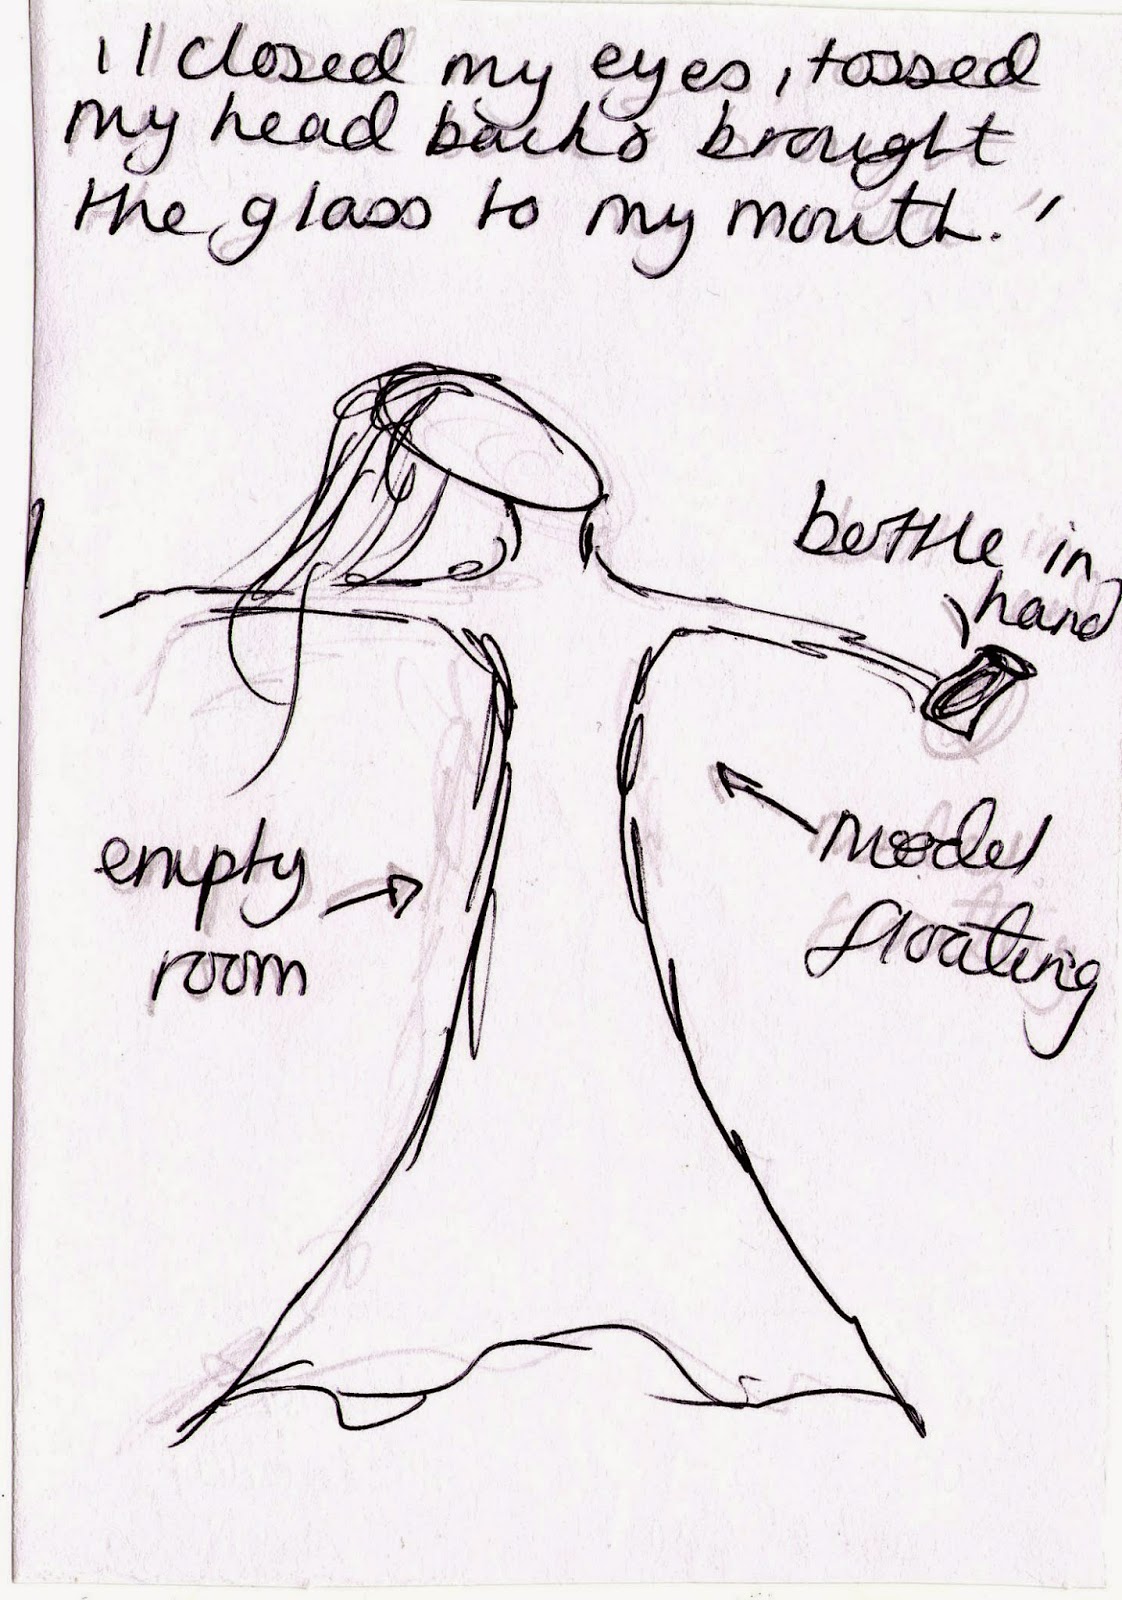 'I closed my eyes, tossed
my head back & brought
the glass to my mouth.'
bottle in
hand
empty
room
model
floating